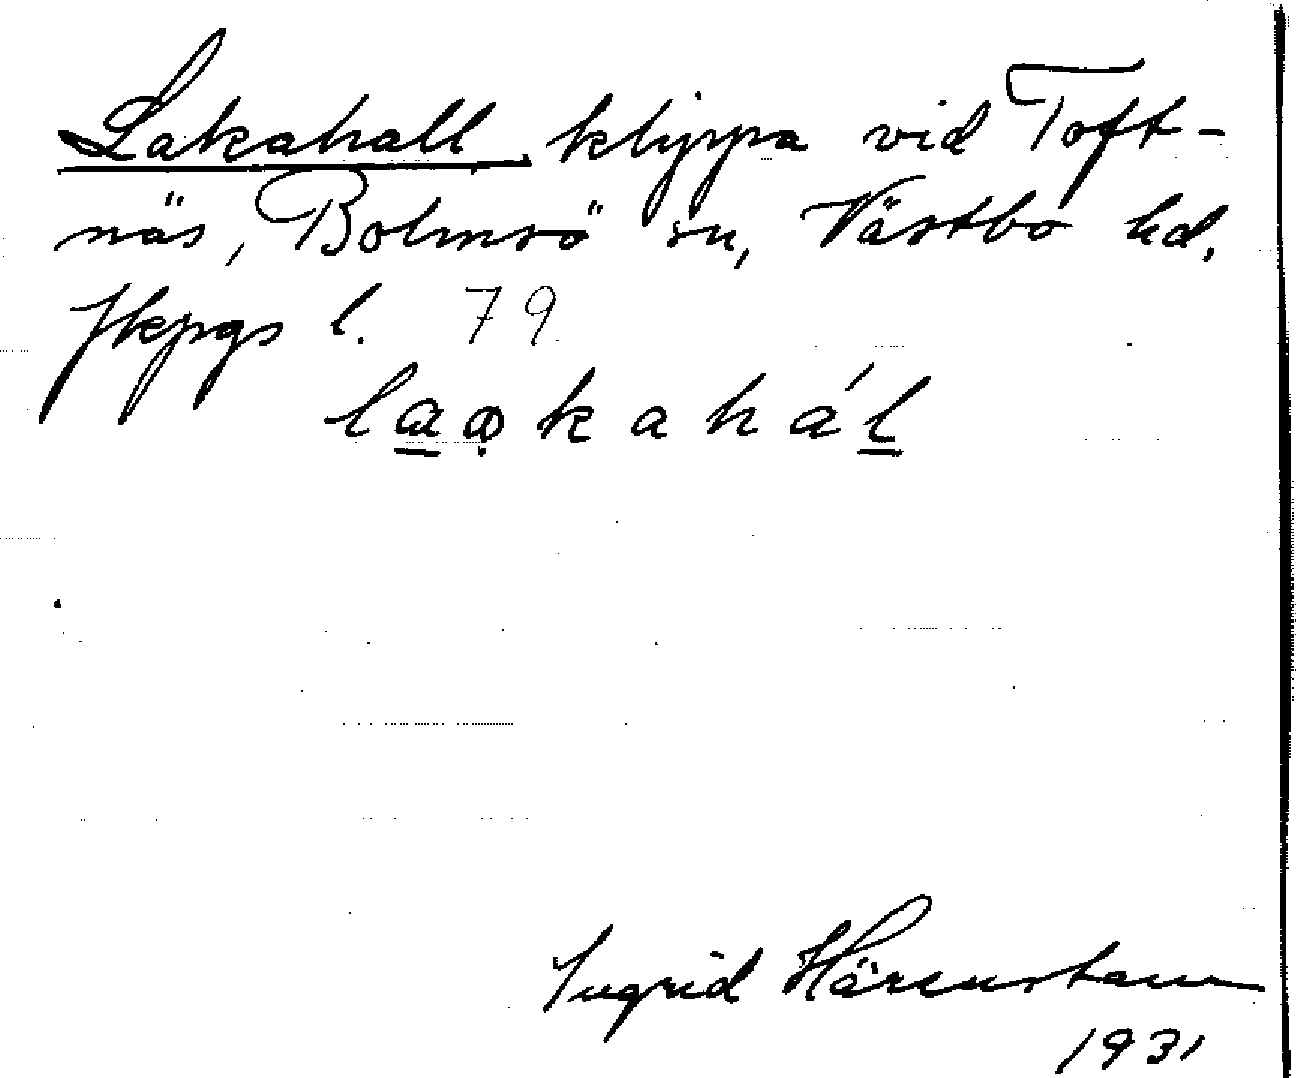 Lakahall klippa vid Toft-
näs, Bolmsö sn, Västbo hd.
Jkpgs l. 79
laakahál
Ingrid Härenstam
1931